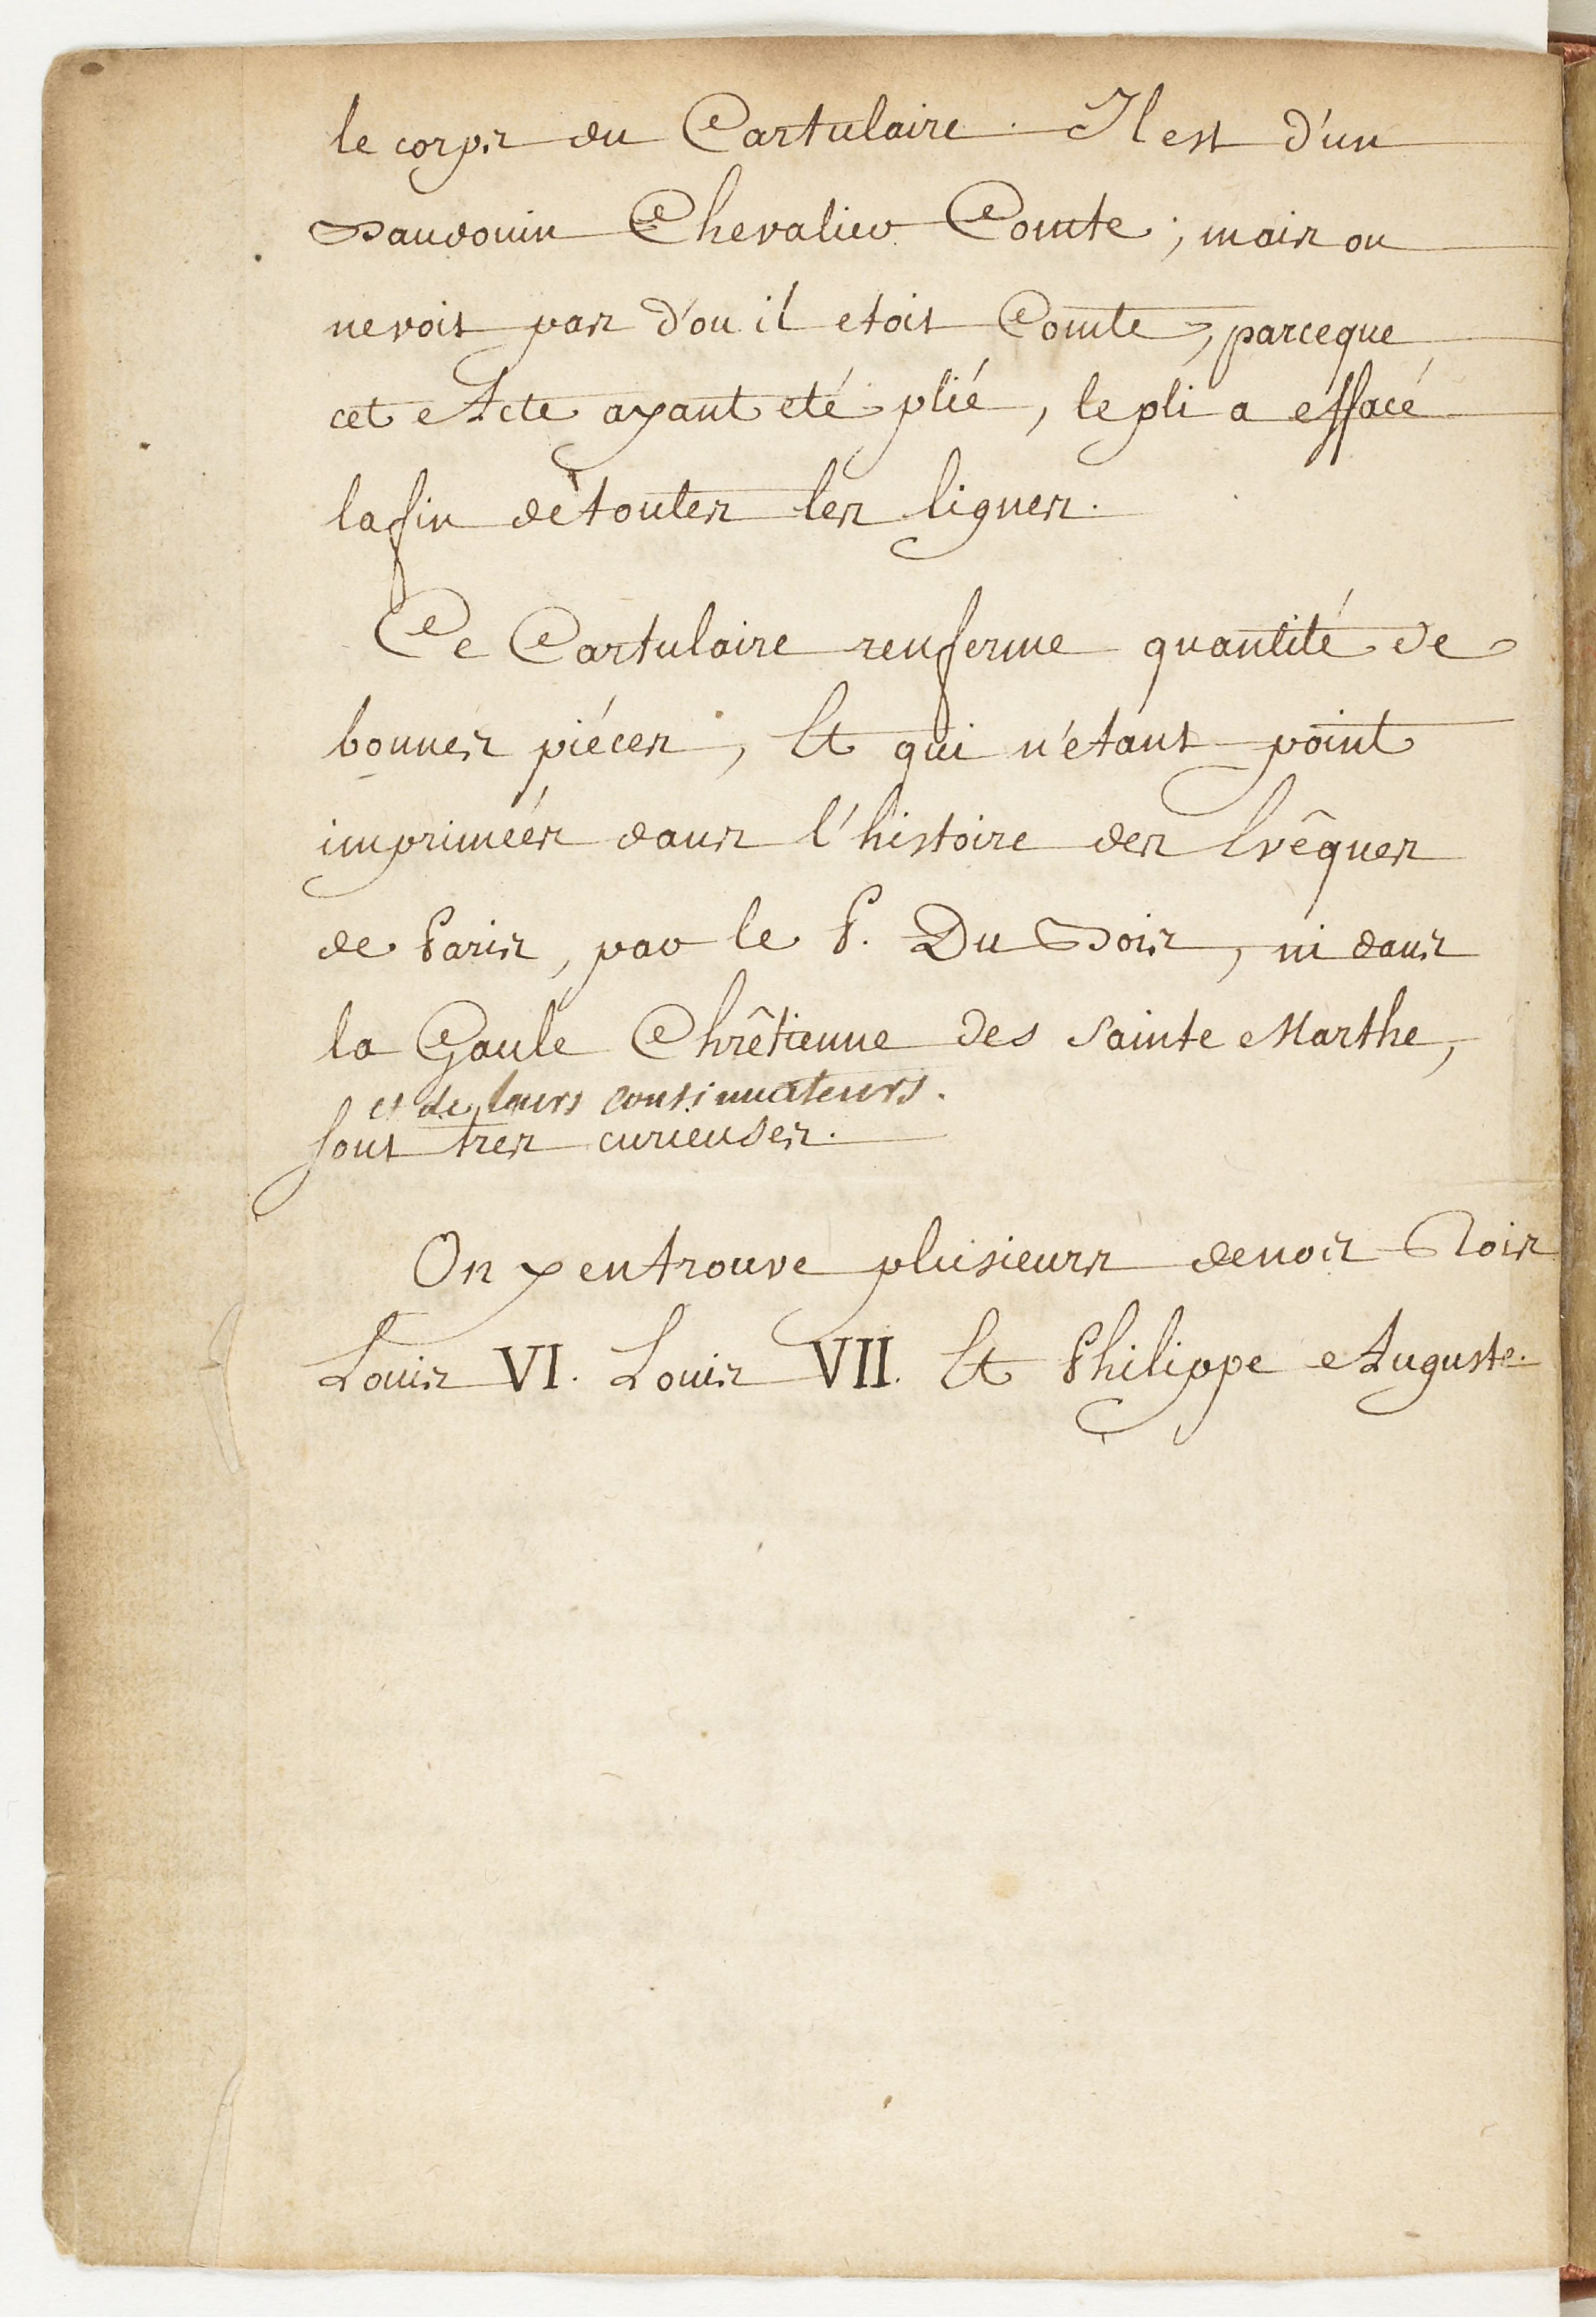 le corps du Cartulaire. Il est d'un
Baudouin Chevalier Comte; mais on
ne voit pas d'ou il etoit Comte, parceque
cet Acte ayant eté plié, le pli a effacé
la fin de toutes les lignes.
Ce Cartulaire renferme quantité de
bonnes piéces, Et qui n'étant point
imprimeés dans l'histoire des Evêques
de Paris, par le P. Du Bois, ni dans
la Gaule Chrêtienne des Sainte Marthe,
et de leurs continuateurs.
sont tres curieuses.
On y en trouve plusieurs de nos Rois
Louis VI. Louis VII. Et Philippe Auguste.